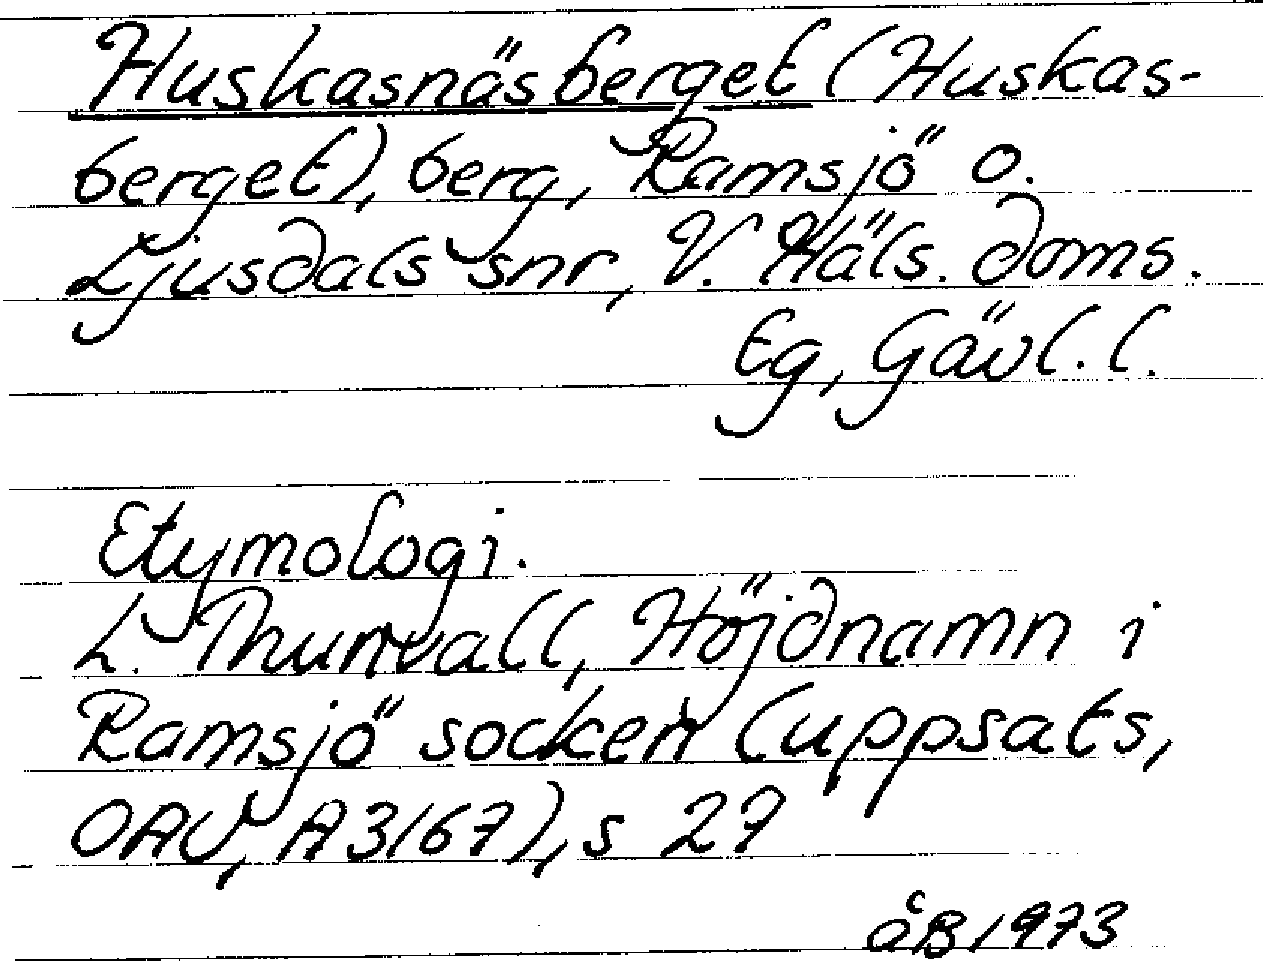 Huskasnäsberget (Huskas-
berget), berg, Ramsjö o.
Ljusdals snr, V. Häls. doms.
Eg, Gävl. l.
Etymologi.
L. Thunvall, Höjdnamn i
Ramsjö socken (uppsats,
OAU, A3167), s 27
åB 1973